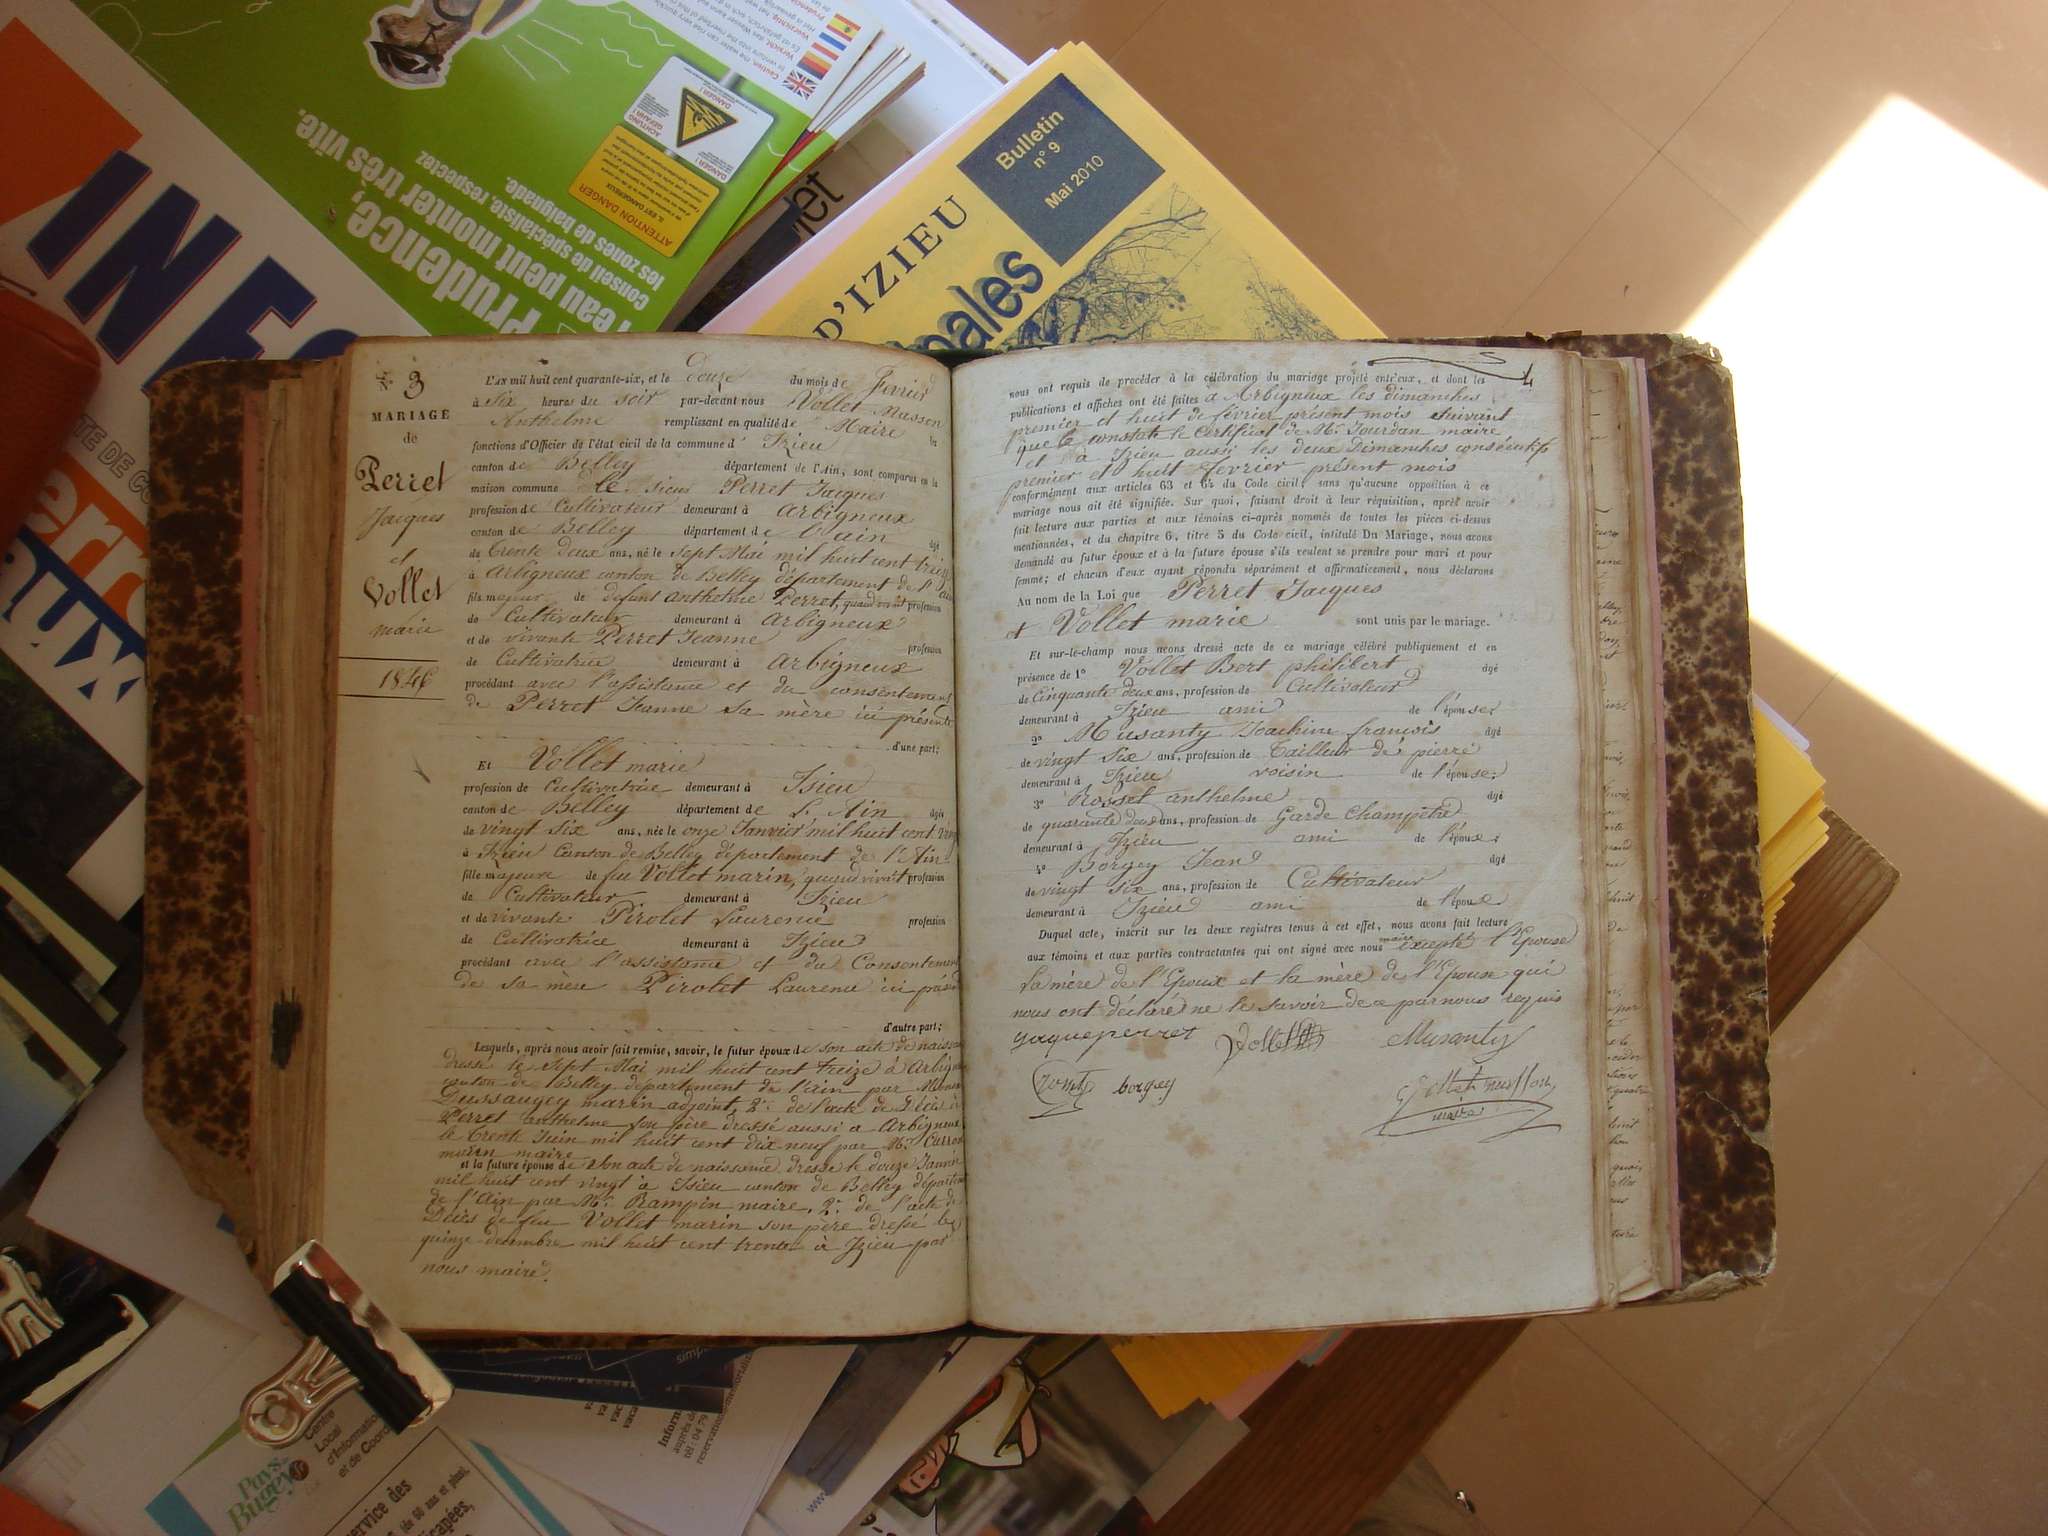 INFO
Prudence,
l'eau peut monter très vite.
conseil de spécialiste, respectez
les zones de baignade.
ATTENTION DANGER
DANGER !
Bulletin
n° 9
Mai 2010
D'IZIEU
pales
N° 3
MARIAGE
de
Perret
Jacques
et
Vollet
marie
1846
L'AN mil huit cent quarante-six, et le douze du mois de Fevrier
à Six heures du soir par-devant nous Vollet Masson
Anthelme remplissant en qualité de Maire les
fonctions d'Officier de l'état civil de la commune d' Izieu
canton de Belley département de l'Ain; sont comparus en la
maison commune le sieur Perret Jacques
profession de Cultivateur demeurant à Arbigneux
canton de Belley département de l'ain âgé
de trente deux ans, né le sept Mai mil huit cent treize
à Arbigneux canton de Belley département de l'Ain
fils majeur de defunt Anthelme Perret, quand vivait profession
de Cultivateur demeurant à Arbigneux
et de vivante Perret Jeanne profession
de Cultivatrice demeurant à Arbigneux
procédant avec l'assistance et du consentement
de Perret Jeanne sa mère ici présente
d'une part;
Et Vollet marie
profession de Cultivatrice demeurant à Isieu
canton de Belley département de L'Ain âgée
de vingt six ans, née le onze Janvier mil huit cent vingt
à Izieu Canton de Belley département de l'Ain
fille majeure de feu Vollet marin, quand vivait profession
de Cultivateur demeurant à Izieu
et de vivante Pirolet Laurence profession
de Cultivatrice demeurant à Izieu
procédant avec l'assistance et du Consentement
de sa mère Pirolet Laurence ici présente
d'autre part;
Lesquels, après nous avoir fait remise, savoir, le futur époux de son acte de naissance
dressé le sept Mai mil huit cent treize à Arbigneux
canton de Belley département de l'ain par
Dussaugey marin adjoint, 2° de l'acte de Décès de
Perret anthelme son père dressé aussi a Arbigneux
le trente Juin mil huit cent dix neuf par Mr
marin maire
et la future épouse de son acte de naissance dressé le douze Janvier
mil huit cent vingt à Isieu canton de Belley département
de l'Ain par Mr. Rampin maire, 2° de l'acte de
Décès de feu Vollet marin son père dressé le
quinze decembre mil huit cent trente à Izieu par
nous maire.
4
nous ont requis de procéder à la célébration du mariage projeté entr'eux, et dont les
publications et affiches ont été faites à Arbigneux les dimanches
premier et huit de février présent mois suivant
que le constate le certificat de Mr. Jourdan maire
et a Izieu aussi les deux Dimanches consécutifs
premier et huit fevrier présent mois
conformément aux articles 63 et 64 du Code civil, sans qu'aucune opposition à ce
mariage nous ait été signifiée. Sur quoi, faisant droit à leur réquisition, après avoir
fait lecture aux parties et aux témoins ci-après nommés de toutes les pièces ci-dessus
mentionnées, et du chapitre 6, titre 5 du Code civil, intitulé Du Mariage, nous avons
demandé au futur époux et à la future épouse s'ils veulent se prendre pour mari et pour
femme; et chacun d'eux ayant répondu séparément et affirmativement, nous déclarons
Au nom de la Loi que Perret Jacques
et Vollet marie sont unis par le mariage.
Et sur-le-champ nous avons dressé acte de ce mariage célébré publiquement et en
présence de 1° Vollet Bert philibert âgé
de Cinquante deux ans, profession de Cultivateur
demeurant à Izieu ami de l'épouse;
2° Musanty Joachim françois âgé
de vingt six ans, profession de tailleur de pierre
demeurant à Izieu voisin de l'épouse;
3° Rosset anthelme âgé
de quarante deux ans, profession de Garde Champêtre
demeurant à Izieu ami de l'époux;
4° Borgey Jean âgé
de vingt six ans, profession de Cultivateur
demeurant à Izieu ami de l'époux
Duquel acte, inscrit sur les deux registres tenus à cet effet, nous avons fait lecture
aux témoins et aux parties contractantes qui ont signé avec nous maire excepté l'Epouse
la mère de l'Epoux et la mère de l'Epouse qui
nous ont déclaré ne le savoir de ce par nous requis
jaqueperret Vollet Musanty
borgey
maire
Pays du
Bugey
Centre
Local
d'Information
et de Coord
service des